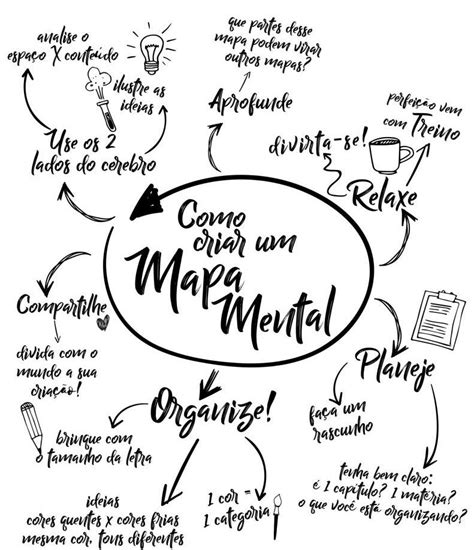 Como
criar um
Mapa
Mental
Relaxe
divirta-se!
perfeição vem
com Treino
Planeje
faça um
rascunho
tenha bem claro:
é 1 capítulo? 1 matéria?
o que você está organizando?
Organize!
1 cor =
1 categoria
ideias
cores quentes x cores frias
mesma cor, tons diferentes
brinque com
o tamanho da letra
Compartilhe
divida com o
mundo a sua
criação!
Use os 2
lados do cerebro
analise o
espaço X conteúdo
ilustre as
ideias
Aprofunde
que partes desse
mapa podem virar
outros mapas?